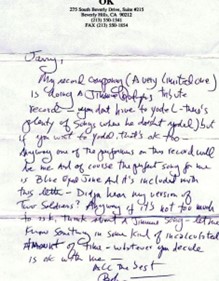 OK
275 South Beverly Drive, Suite #215
Beverly Hills, CA 90212
(213) 550-1361
FAX (213) 550-1034
Jerry,
My record company (A very limited one)
is doing a Jimmie Rodgers tribute
record - you dont have to yodel - there's
plenty of songs where he doesnt yodel) but
if you wish to yodel that's ok too -
Anyway one of the performers on this record will
be me And of course the perfect song for me
is Blue Eyed Jane And it's included with
this letter - Didja hear my version of
Two Soldiers? Anyway if it's not too much
to ask, think about a Jimmie song - let me
know something in some kind of
amount of time - whatever you decide
is ok with me -
All the best
Bob -